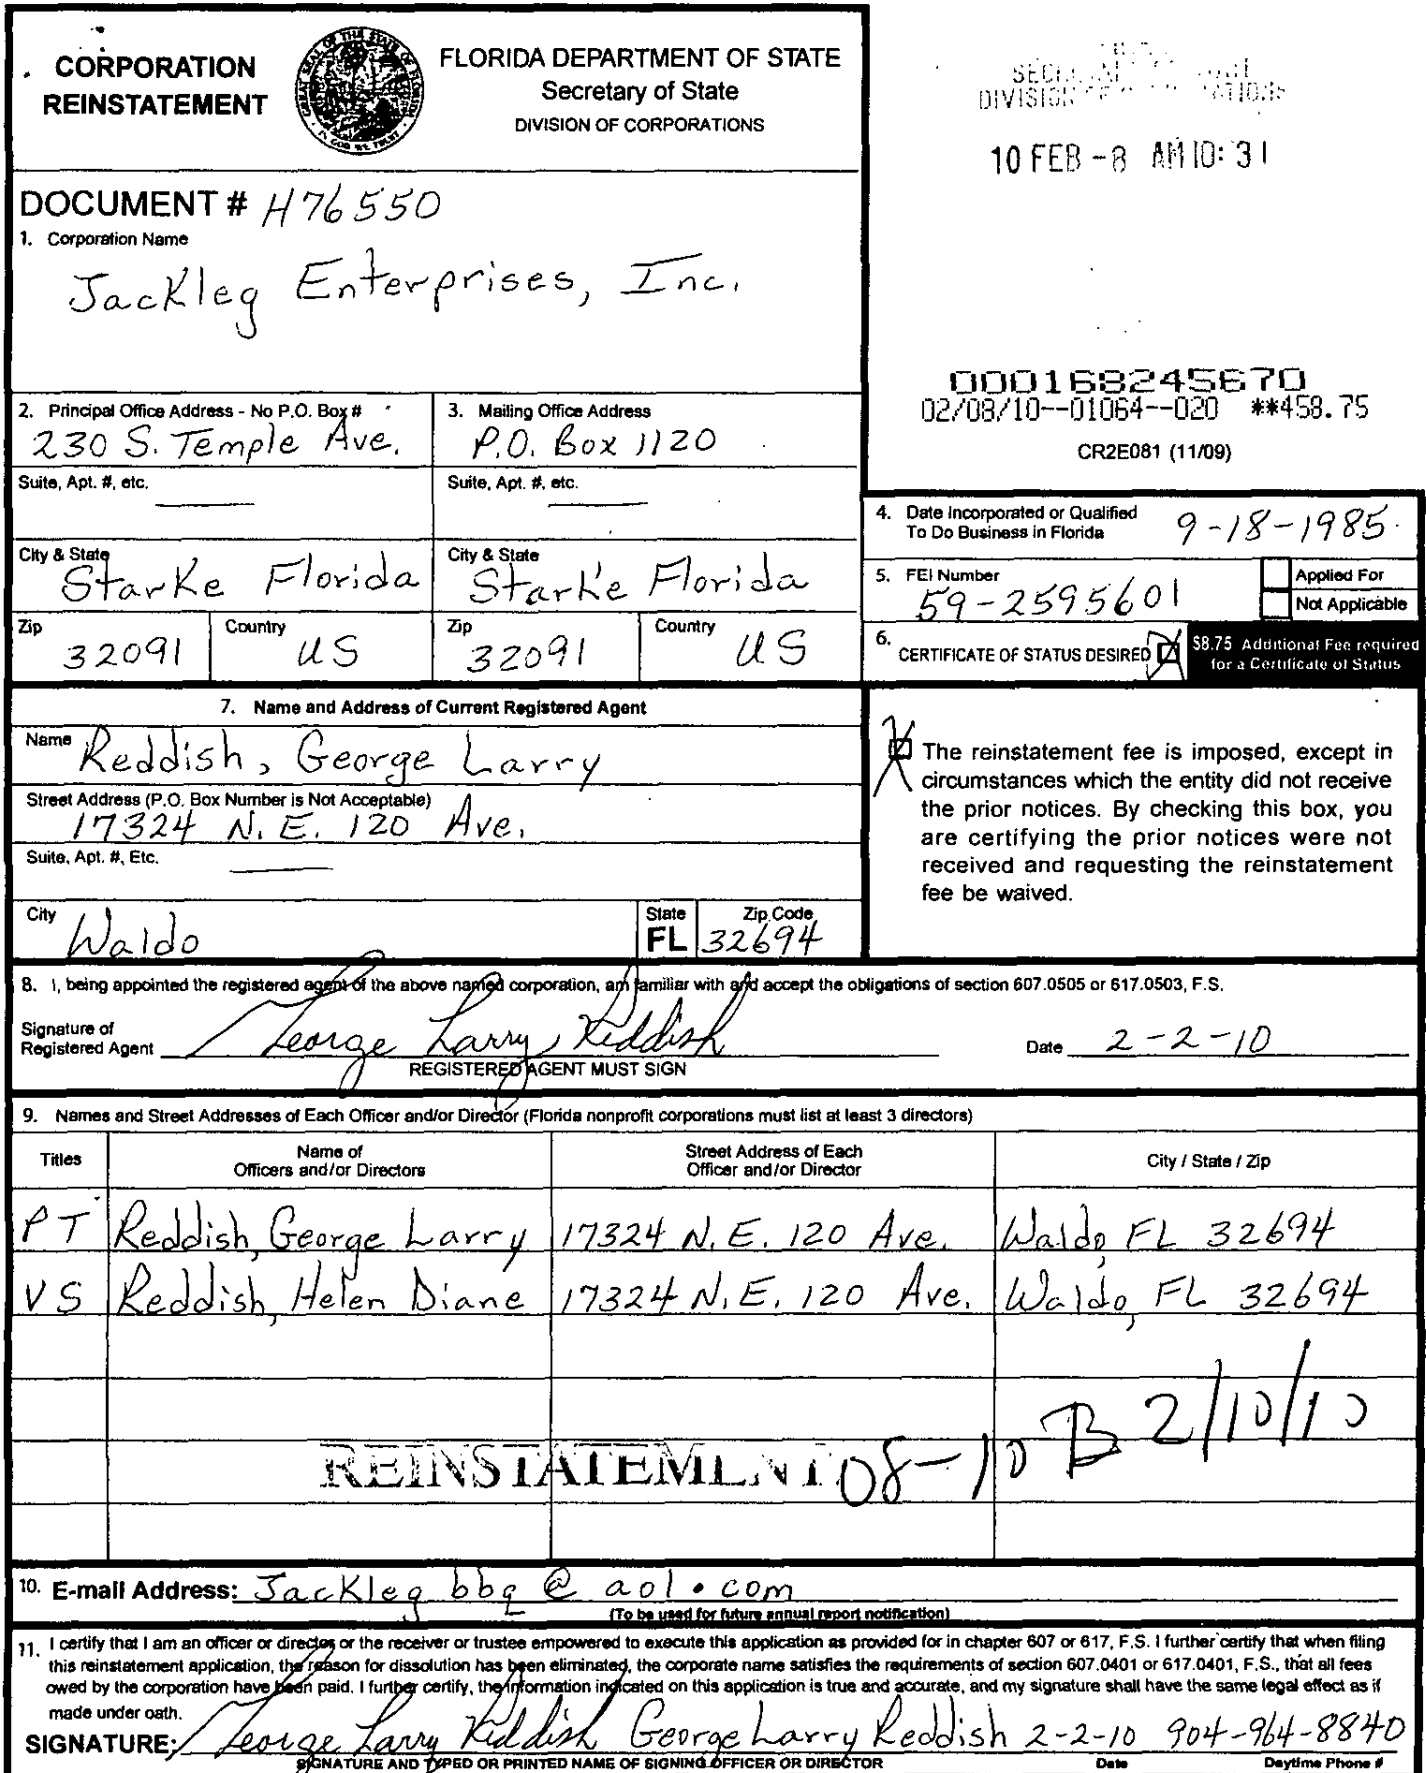 CORPORATION
REINSTATEMENT
FLORIDA DEPARTMENT OF STATE
Secretary of State
DIVISION OF CORPORATIONS
DIVISION
10 FEB -8 AM 10: 31
DOCUMENT # H76550
1. Corporation Name
Jackleg Enterprises, Inc.
000168245670
02/08/10--01064--020 **458.75
CR2E081 (11/09)
2. Principal Office Address - No P.O. Box #
230 S. Temple Ave.
3. Mailing Office Address
P.O. Box 1120
Suite, Apt. #, etc.
Suite, Apt. #, etc.
City & State
Starke Florida
City & State
Starke Florida
Zip
32091
Country
US
Zip
32091
Country
US
4. Date Incorporated or Qualified
To Do Business in Florida
9-18-1985
5. FEI Number
59-2595601
Applied For
Not Applicable
6. CERTIFICATE OF STATUS DESIRED
$8.75 Additional Fee required
for a Certificate of Status
7. Name and Address of Current Registered Agent
Name Reddish, George Larry
Street Address (P.O. Box Number is Not Acceptable)
17324 N.E. 120 Ave.
Suite, Apt. #, Etc.
City Waldo
State
FL
Zip Code
32694
The reinstatement fee is imposed, except in
circumstances which the entity did not receive
the prior notices. By checking this box, you
are certifying the prior notices were not
received and requesting the reinstatement
fee be waived.
8. I, being appointed the registered agent of the above named corporation, am familiar with and accept the obligations of section 607.0505 or 617.0503, F.S.
Signature of
Registered Agent George Larry Reddish
REGISTERED AGENT MUST SIGN
Date 2-2-10
9. Names and Street Addresses of Each Officer and/or Director (Florida nonprofit corporations must list at least 3 directors)
Titles
Name of
Officers and/or Directors
Street Address of Each
Officer and/or Director
City / State / Zip
PT Reddish, George Larry 17324 N.E. 120 Ave. Waldo, FL 32694
VS Reddish, Helen Diane 17324 N.E. 120 Ave. Waldo, FL 32694
B 2/10/10
REINSTATEMENT 08-10
10. E-mail Address: Jacklegbbq@aol.com
(To be used for future annual report notification)
11. I certify that I am an officer or director or the receiver or trustee empowered to execute this application as provided for in chapter 607 or 617, F.S. I further certify that when filing
this reinstatement application, the reason for dissolution has been eliminated, the corporate name satisfies the requirements of section 607.0401 or 617.0401, F.S., that all fees
owed by the corporation have been paid. I further certify, the information indicated on this application is true and accurate, and my signature shall have the same legal effect as if
made under oath.
SIGNATURE: George Larry Reddish George Larry Reddish 2-2-10 904-964-8840
SIGNATURE AND TYPED OR PRINTED NAME OF SIGNING OFFICER OR DIRECTOR Date Daytime Phone #